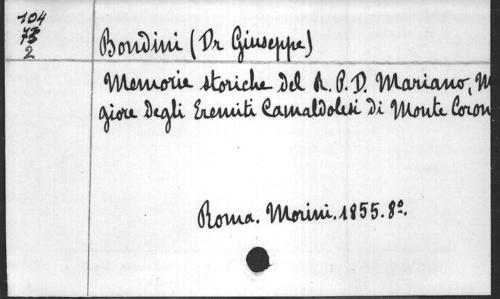 104
73
2
Bondini (Dr Giuseppe)
Memorie storiche del R. P. D. Mariano, M
giore degli Eremiti Camaldolesi di Monte Coron
Roma. Morini. 1855. 8º.